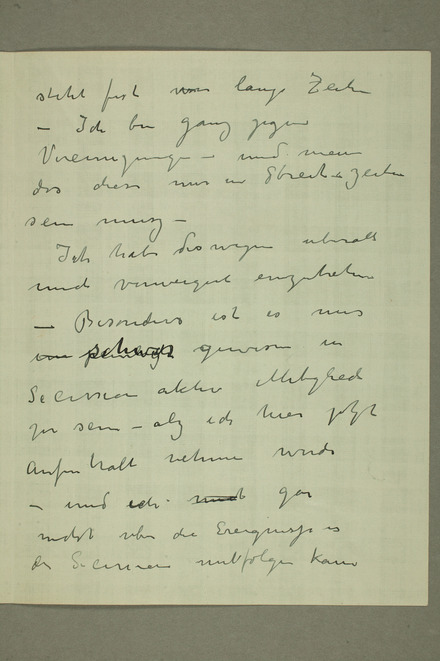 steht fest lange Zeiten
– Ich bin ganz gegen
Vereinigungen – und
das dies nur in Streit & zeiten
sein musz –
Ich habe deswegen uberall
mich verweigert einzutreten
– Besonders ist es mir
gewesen in
Secession aktiv Mitglied
zu sein – alz ich hier jetzt
Aufenthalt nehmen
– und ich nicht gar
nicht uber die Ereignisse in
der Secession mitfolgen kann